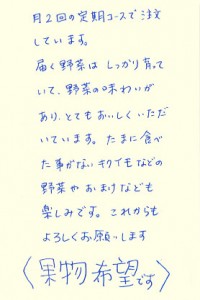 月2回の定期コースで注文
しています。
届く野菜は しっかり育って
いて、野菜の味わいが
あり、とてもおいしくいただ
いています。たまに食べ
た事がないキクイモなどの
野菜や おまけなども
楽しみです。これからも
よろしくお願いします
〈果物希望です〉